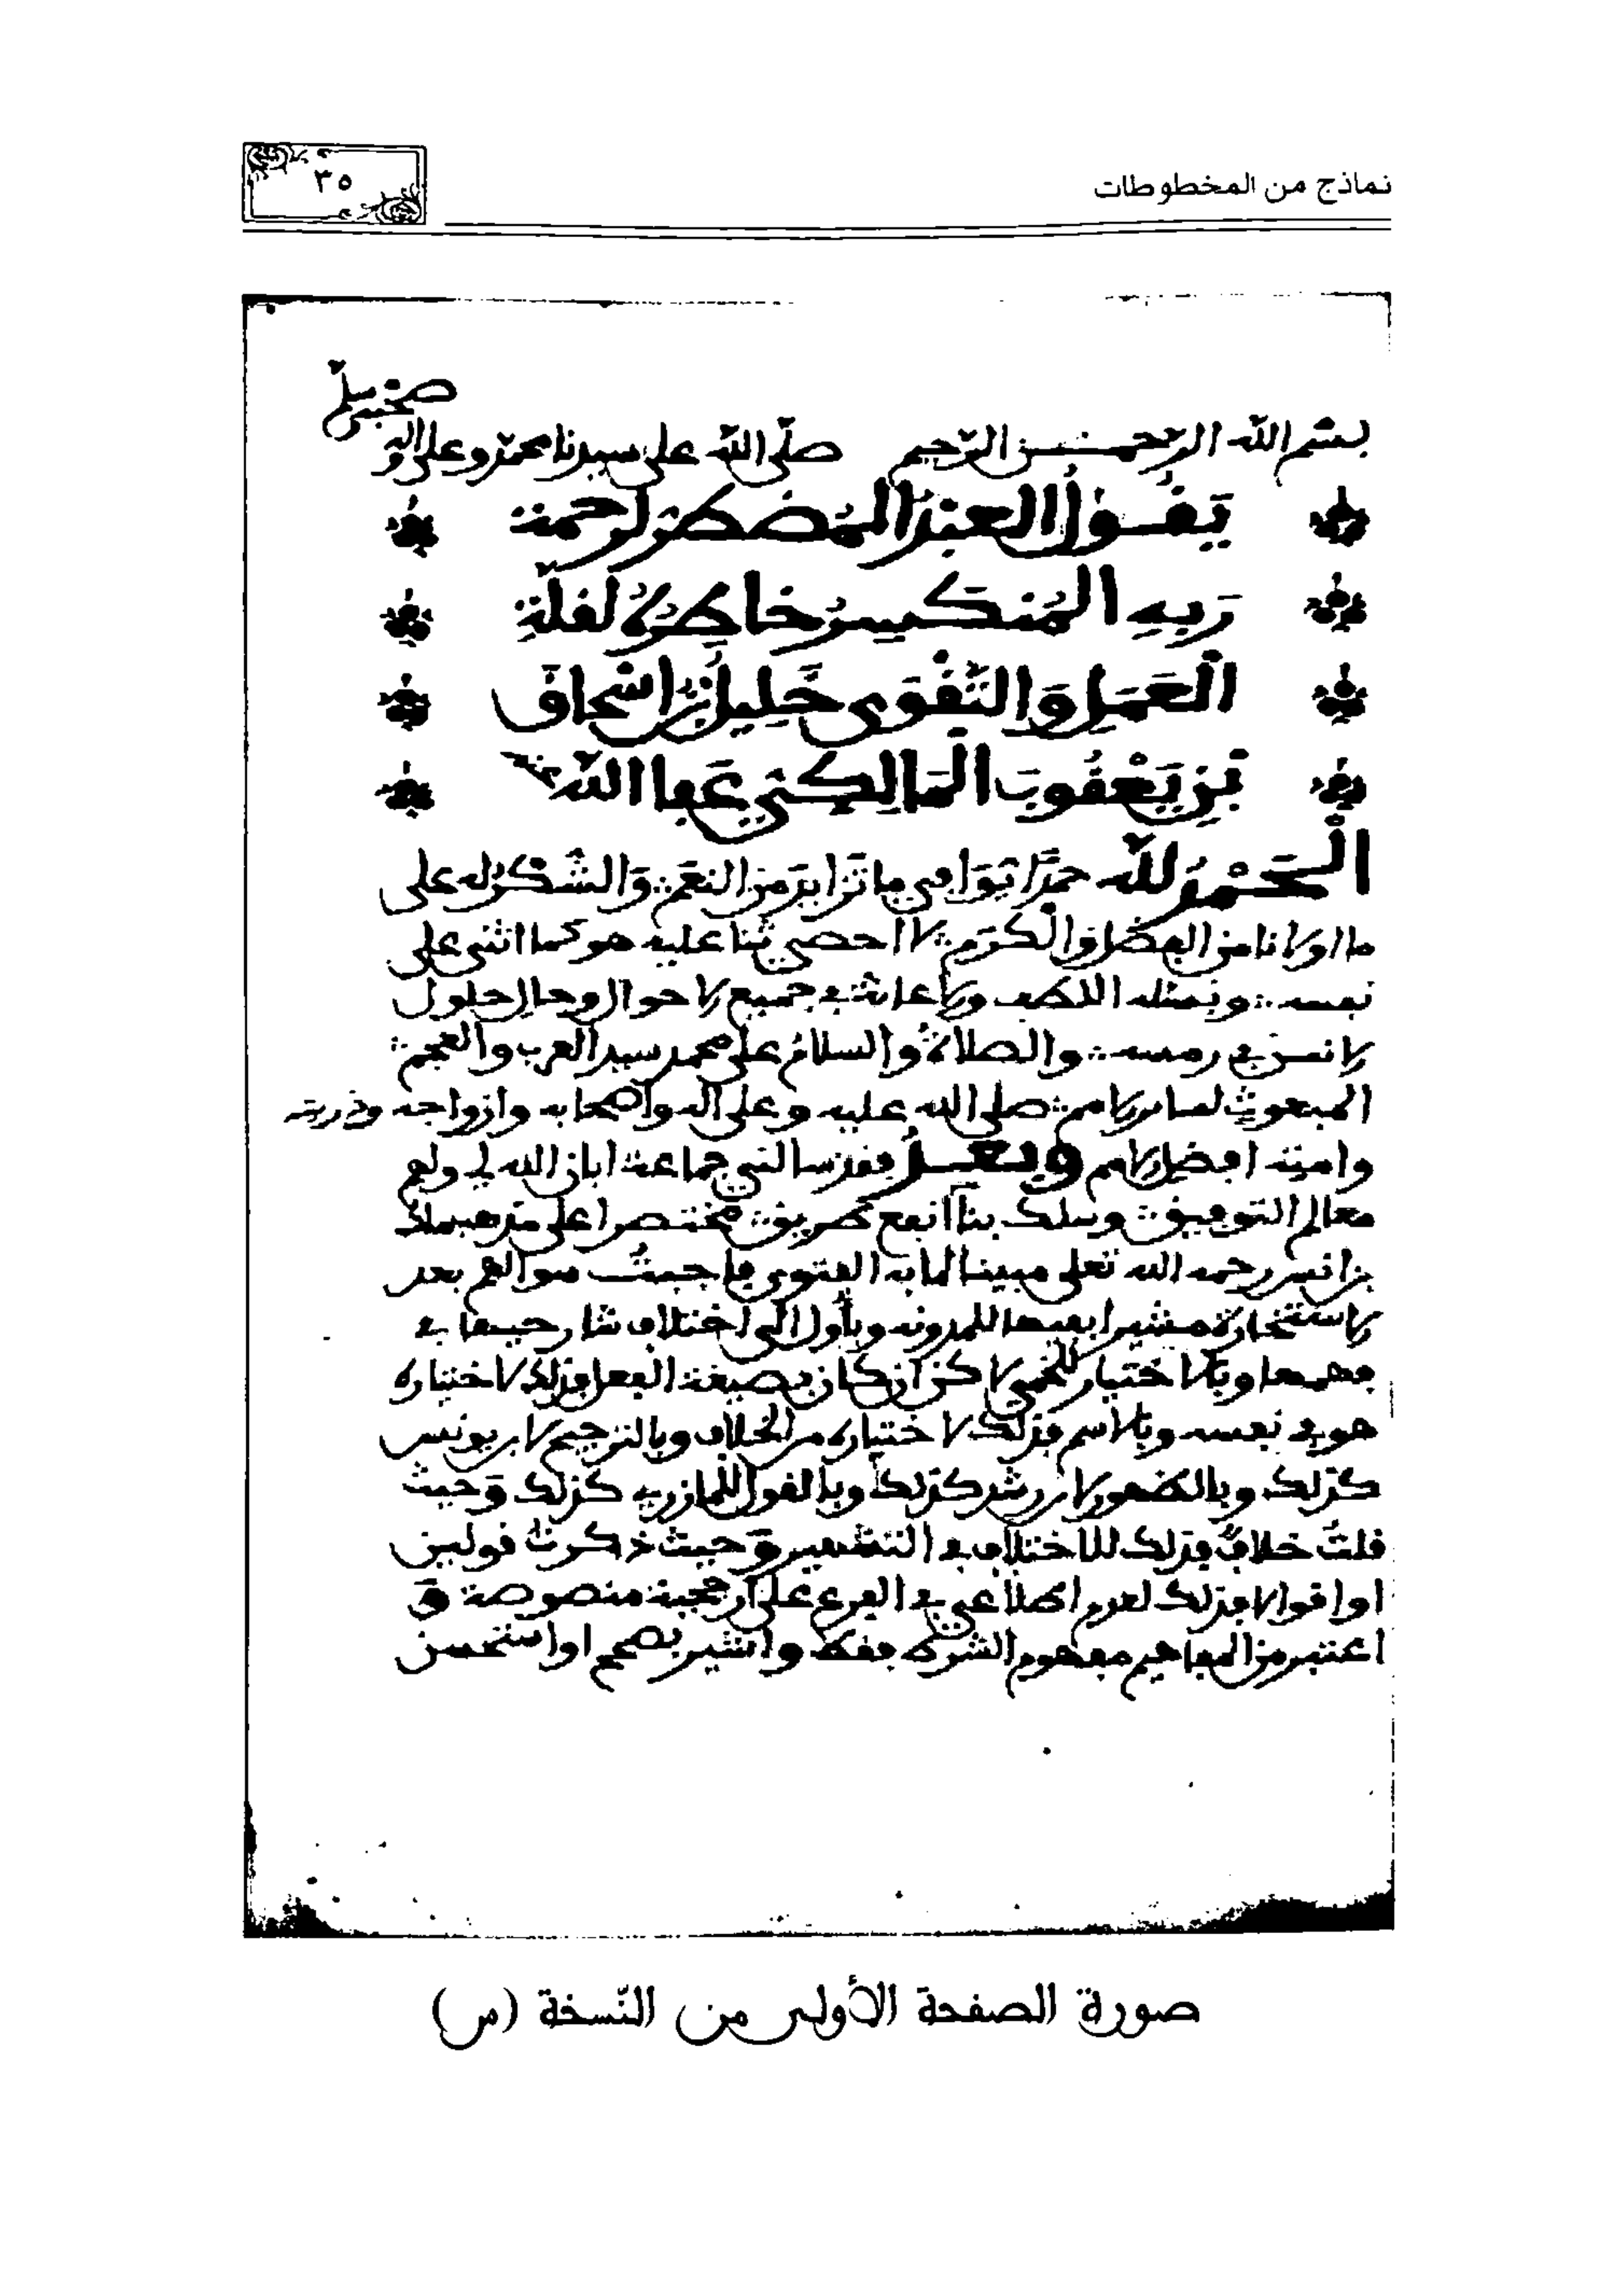 نماذج من المخطوطات
٣٥
وصحبه وسلم
بسم الله الرحمن الرحيم صلى الله على سيدنا محمد وعلى اله
يَقُولُ العبدُ المُضطَرُّ لرحمة
رَبِهِ المُنكَسِرُ خاطِرُهُ لقلةِ
الْعَمَلِ وَالتَّقْوَى خَلِيلُ بْنُ اسْحَاقَ
بْنِ يَعْقُوبَ الْمَالِكِيُّ عَفَا اللهُ عنه
الْحَمْدُ لله حمدًا يُوَافِي ما تَزَايَدَ من النعَمِ وَالشُّكْرُ له على
ما اولانا من الفضل والْكَرَمِ لا احصي ثناء عليه هو كما اثنى على
نفسه ونسئله اللطف والاعانة في جميع الاحوال وحال حلول
الانسن في رمسه والصلاةُ والسلامُ على محمد سيد العرب والعجم
المبعوث لسائر الامم صلى الله عليه وعلى اله واصحابه وازواجه وذريته
وامته افضل الامم وبعدُ فقد سالني جماعة ابان الله لي ولهم
معالم التوفيق وسلك بنا انفع طريق مختصرا على مذهب مالك
بن انس رحمه الله تعلى مبينا لما به الفتوى فاجبتُ سوالهم بعد
الاستخارة مشيرا بفيها للمدونه وبأُوِّلَ الى اختلاف شارحيها في
فهمها وبالاختيار للخمي لاكن ان كان بصيغة الفعل فذلك لاختياره
هو في نفسه وبالاسم فذلك لاختياره من الخلاف وبالترجيح لابن يونس
كذلك وبالظهور لابن رشد كذلك وبالقول للمازري كذلك وَحيث
قلتُ خلافٌ فذلك للاختلاف في التشهير وَحيث ذكرتُ قولين
او اقوالا فذلك لعدم اطلاعي في الفرع على ارجحية منصوصة وَ
اعتبر من المفاهيم مفهوم الشرط فقط واشير بصحح او استحسن
صورة الصفحة الأولى من النّسخة (س)